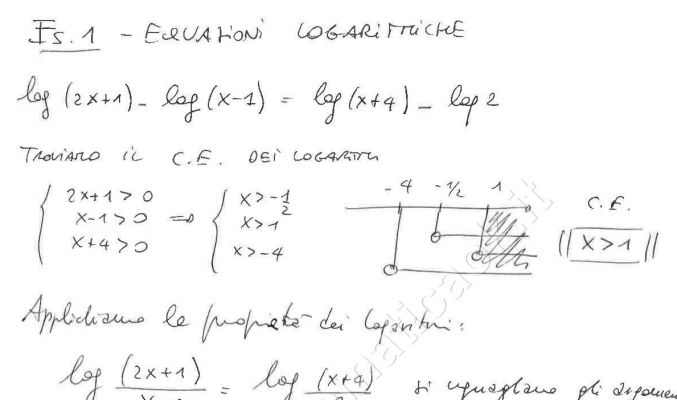 Es. 1 - EQUAZIONI LOGARITMICHE
log (2x+1) - log (x-1) = log (x+4) - log 2
TROVIAMO IL C.E. DEI LOGARITMI
{ 2x+1>0 x-1>0 x+4>0 => { x>-1/2 x>1 x>-4
-4 -1/2 1
C.E. || x>1 ||
Applichiamo le proprietà dei logaritmi:
log (2x+1) = log (x+4) si uguagliano gli